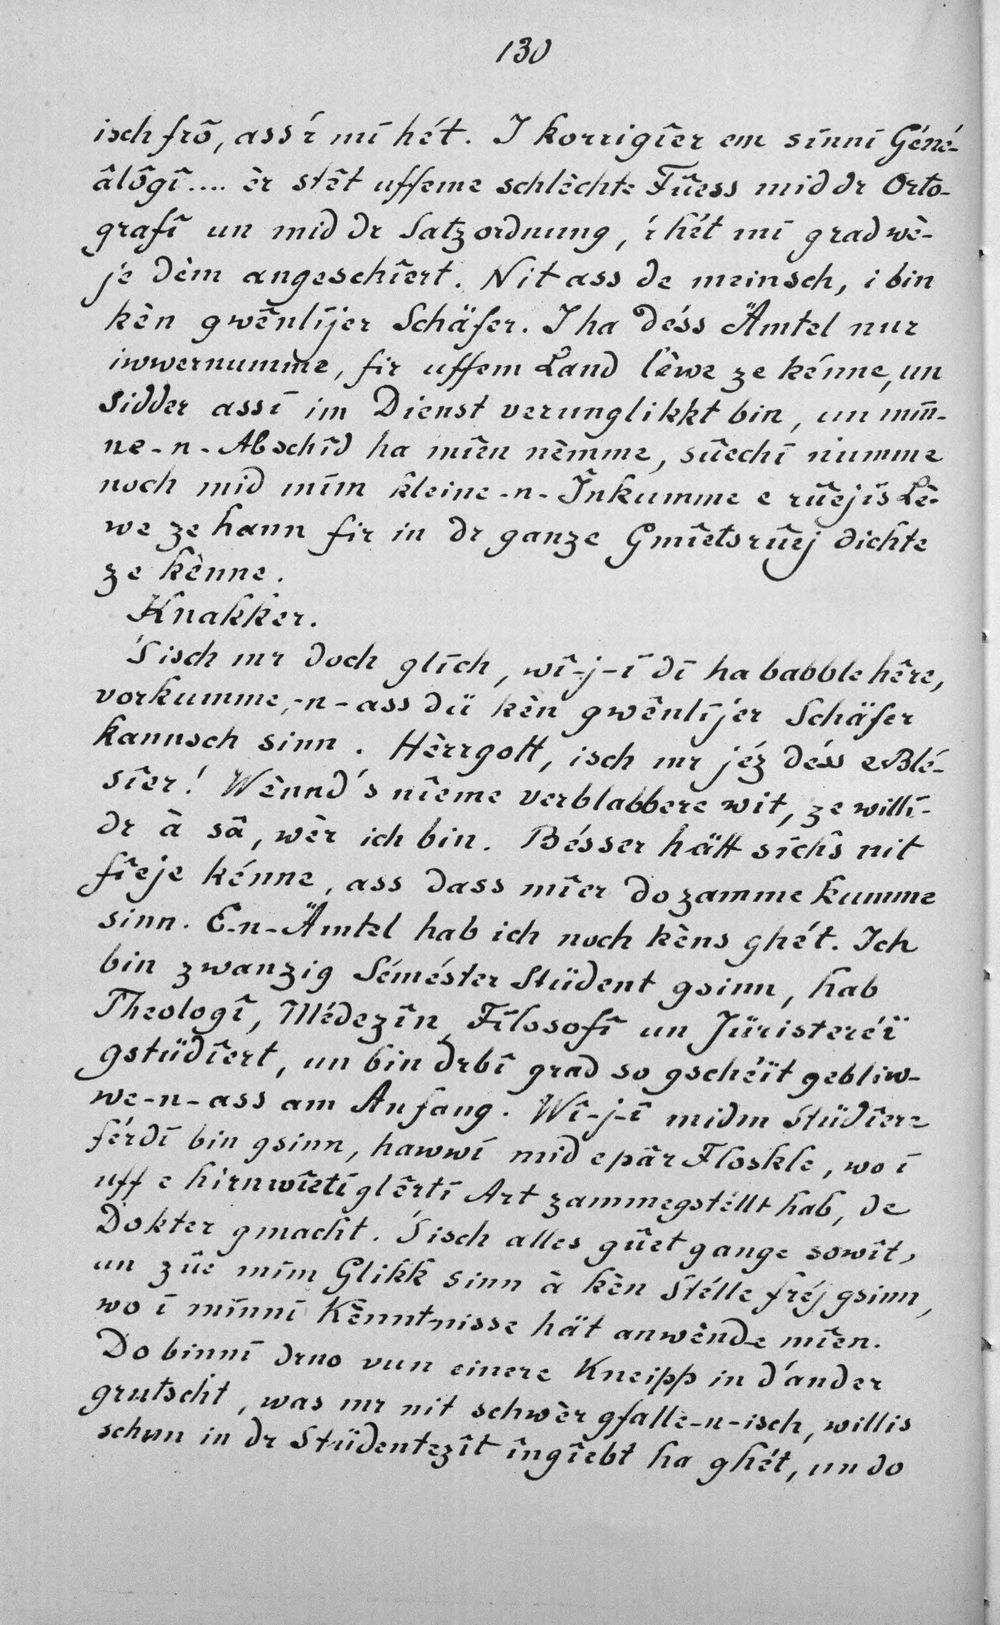 130
isch frô, ass'r mi hét. I korrigîer em sinni Géné-
âlôgî.... èr stêt uffeme schlèchte Fûess mid dr Orto-
grafî un mid dr Satzordnung, 'r hét mi grad wè-
je dèm angeschîert. Nit ass de meinsch, i bin
kèn gwênlijer Schäfer. I ha dèss Ämtel nur
iwwernumme, fir uffem Land lêwe ze kénne, un
sidder assi im Dienst verunglikkt bin, un min-
ne-n-Abschîd ha mîen nèmme, sûechi numme
noch mid mim kleine-n-Înkumme e rûejis Lê-
we ze hann fir in dr ganze Gmîetsrûej dichte
ze kènne.
Knakker.
'S isch mr doch glich, wî-j-i di ha babble hêre,
vorkumme,-n-ass dü kèn gwênlijer Schäfer
kannsch sinn. Hèrrgott, isch mr jéz déss e Blé-
sîer! Wènnd's nîeme verblabbere wit, ze willi-
dr à sâ, wèr ich bin. Bésser hätt sichs nit
fîeje kénne, ass dass mîer do zamme kumme
sinn. E-n-Ämtel hab ich noch kèns ghét. Ich
bin zwanzig Séméster Stüdent gsinn, hab
Theologî, Médezîn, Filosofî un Jüristeréï
gstüdîert, un bin drbî grad so gschéït gebliw-
we-n-ass am Anfang. Wî-j-i midm Stüdîere
férdi bin gsinn, hawwi mid e pâr Floskle, wo i
uff e hirnwîetiglêrti Art zammegstéllt hab, de
Dokter gmacht. 'S isch alles gûet gange sowît,
un zûe mim Glikk sinn à kèn Stélle fréj gsinn,
wo i minni Kènntnisse hät anwènde mîen.
Do binni drno vun einere Kneipp in d'ander
grutscht, was mr nit schwèr gfalle-n-isch, willis
schun in dr Stüdentezît îngîebt ha ghét, un do